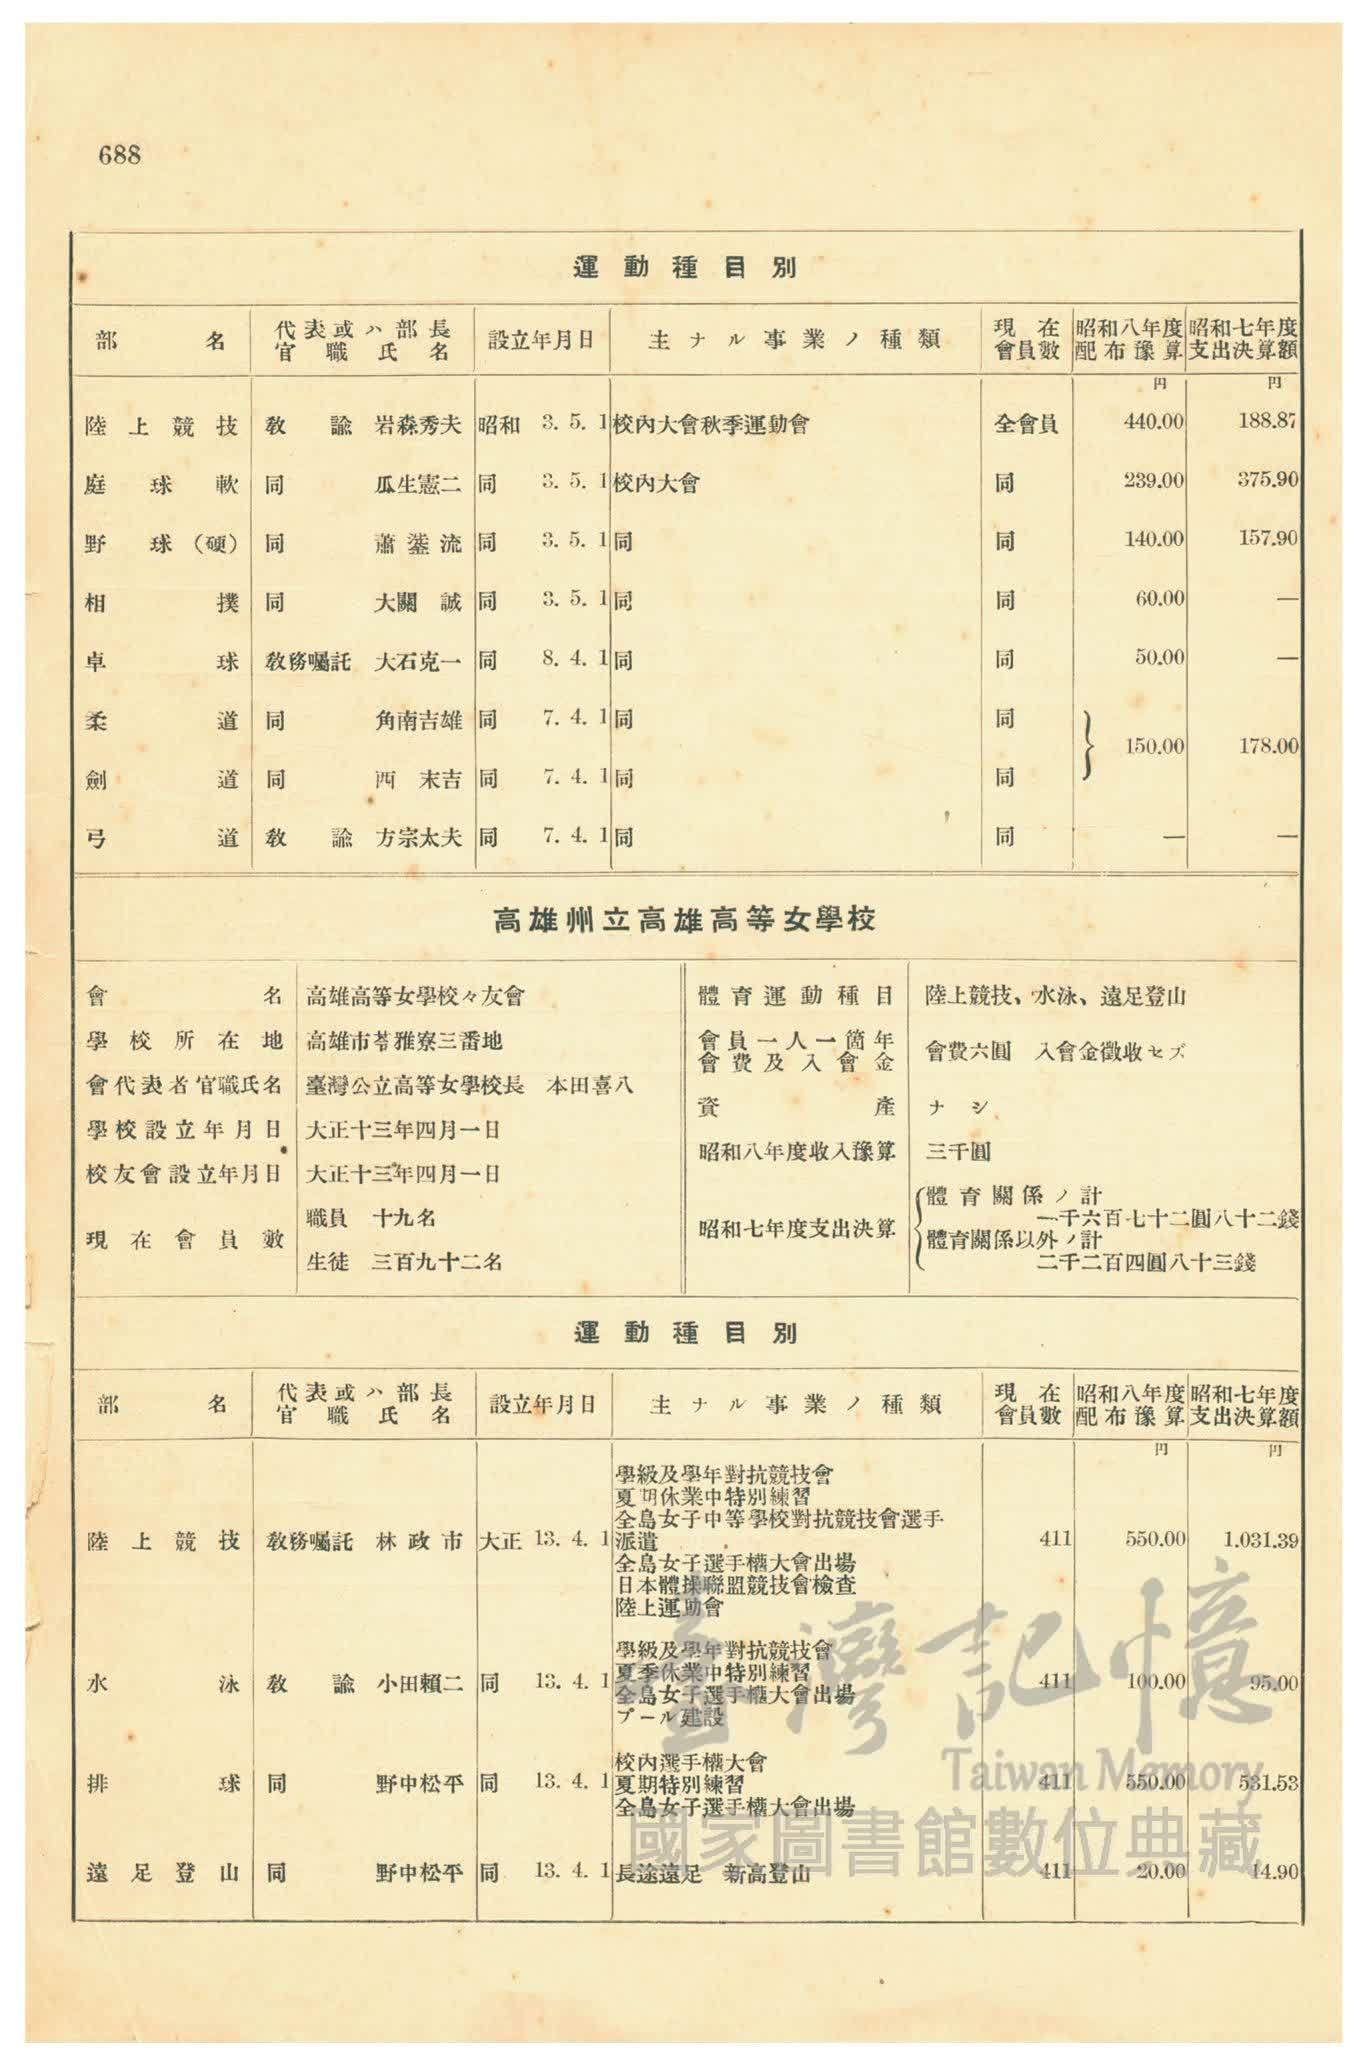 688
運動種目別
部名 代表或ハ部長官職氏名 設立年月日 主ナル事業ノ種類 現在會員數 昭和八年度配布豫算 昭和七年度支出決算額
円 円
陸上競技 敎諭 岩森秀夫 昭和 3. 5. 1 校內大會秋季運動會 全會員 440.00 188.87
庭球軟 同 瓜生憲二 同 3. 5. 1 校內大會 同 239.00 375.90
野球(硬) 同 蕭 流 同 3. 5. 1 同 同 140.00 157.90
相撲 同 大關誠 同 3. 5. 1 同 同 60.00 —
卓球 敎務囑託 大石克一 同 8. 4. 1 同 同 50.00 —
柔道 同 角南吉雄 同 7. 4. 1 同 同
150.00 178.00
劍道 同 西末吉 同 7. 4. 1 同 同
弓道 敎諭 方宗太夫 同 7. 4. 1 同 同 — —
高雄州立高雄高等女學校
會名 高雄高等女學校々友會
學校所在地 高雄市苓雅寮三番地
會代表者官職氏名 臺灣公立高等女學校長 本田喜八
學校設立年月日 大正十三年四月一日
校友會設立年月日 大正十三年四月一日
現在會員數 職員 十九名
生徒 三百九十二名
體育運動種目 陸上競技、水泳、遠足登山
會員一人一箇年會費及入會金 會費六圓 入會金徵收セズ
資產 ナシ
昭和八年度收入豫算 三千圓
昭和七年度支出決算 體育關係ノ計
一千六百七十二圓八十二錢
體育關係以外ノ計
二千二百四圓八十三錢
運動種目別
部名 代表或ハ部長官職氏名 設立年月日 主ナル事業ノ種類 現在會員數 昭和八年度配布豫算 昭和七年度支出決算額
円 円
陸上競技 敎務囑託 林政市 大正 13. 4. 1 學級及學年對抗競技會 411 550.00 1.031.39
夏期休業中特別練習
全島女子中等學校對抗競技會選手
派遣
全島女子選手權大會出場
日本體操聯盟競技會檢查
陸上運動會
水泳 敎諭 小田賴二 同 13. 4. 1 學級及學年對抗競技會 411 100.00 95.00
夏季休業中特別練習
全島女子選手權大會出場
プール建設
排球 同 野中松平 同 13. 4. 1 校內選手權大會 411 550.00 531.53
夏期特別練習
全島女子選手權大會出場
遠足登山 同 野中松平 同 13. 4. 1 長途遠足 新高登山 411 20.00 14.90
臺灣記憶
Taiwan Memory
國家圖書館數位典藏